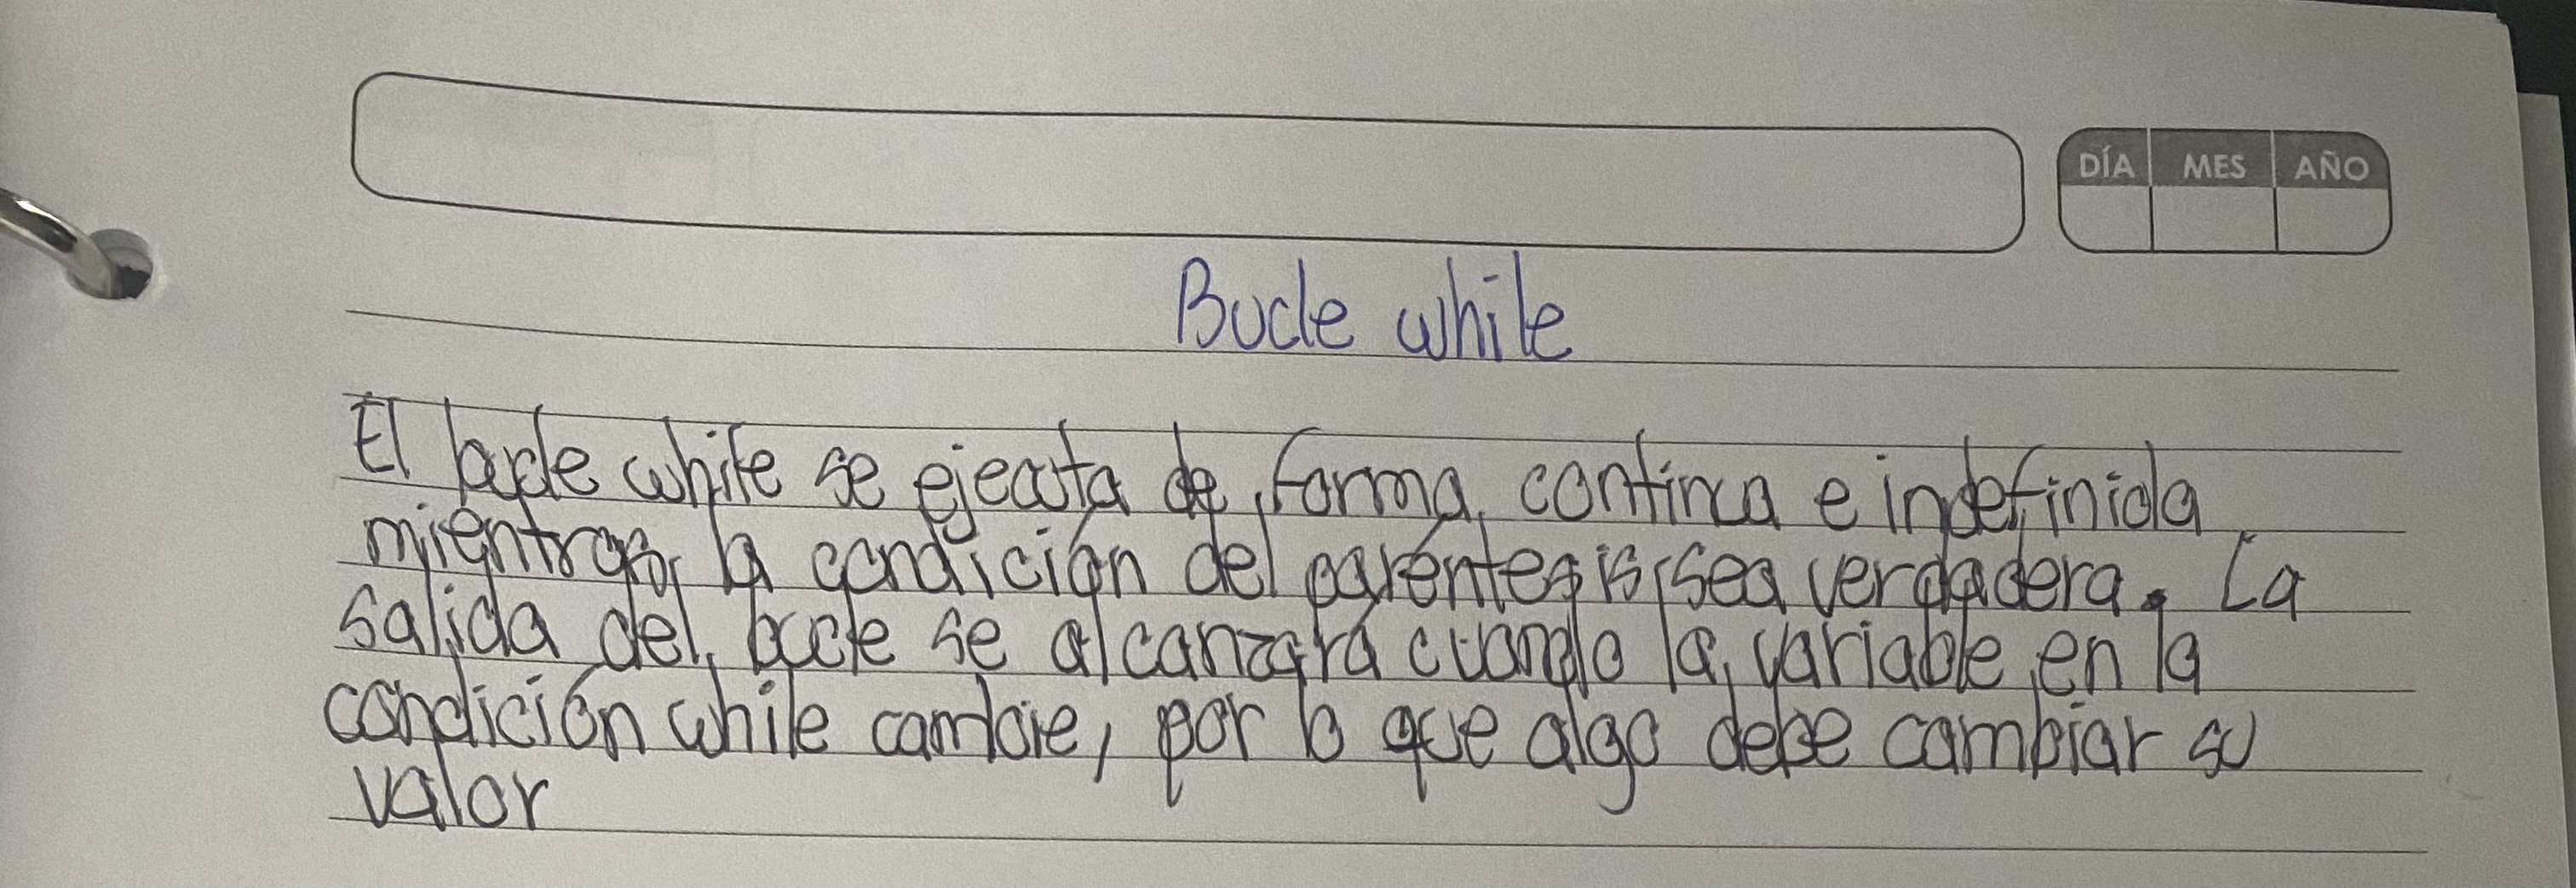 DÍA MES AÑO
Bucle while
El bucle while se ejecuta de forma continua e indefinida
mientras la condición del paréntesis sea verdadera. La
salida del bucle se alcanzará cuando la variable en la
condición while cambie, por lo que algo debe cambiar su
valor